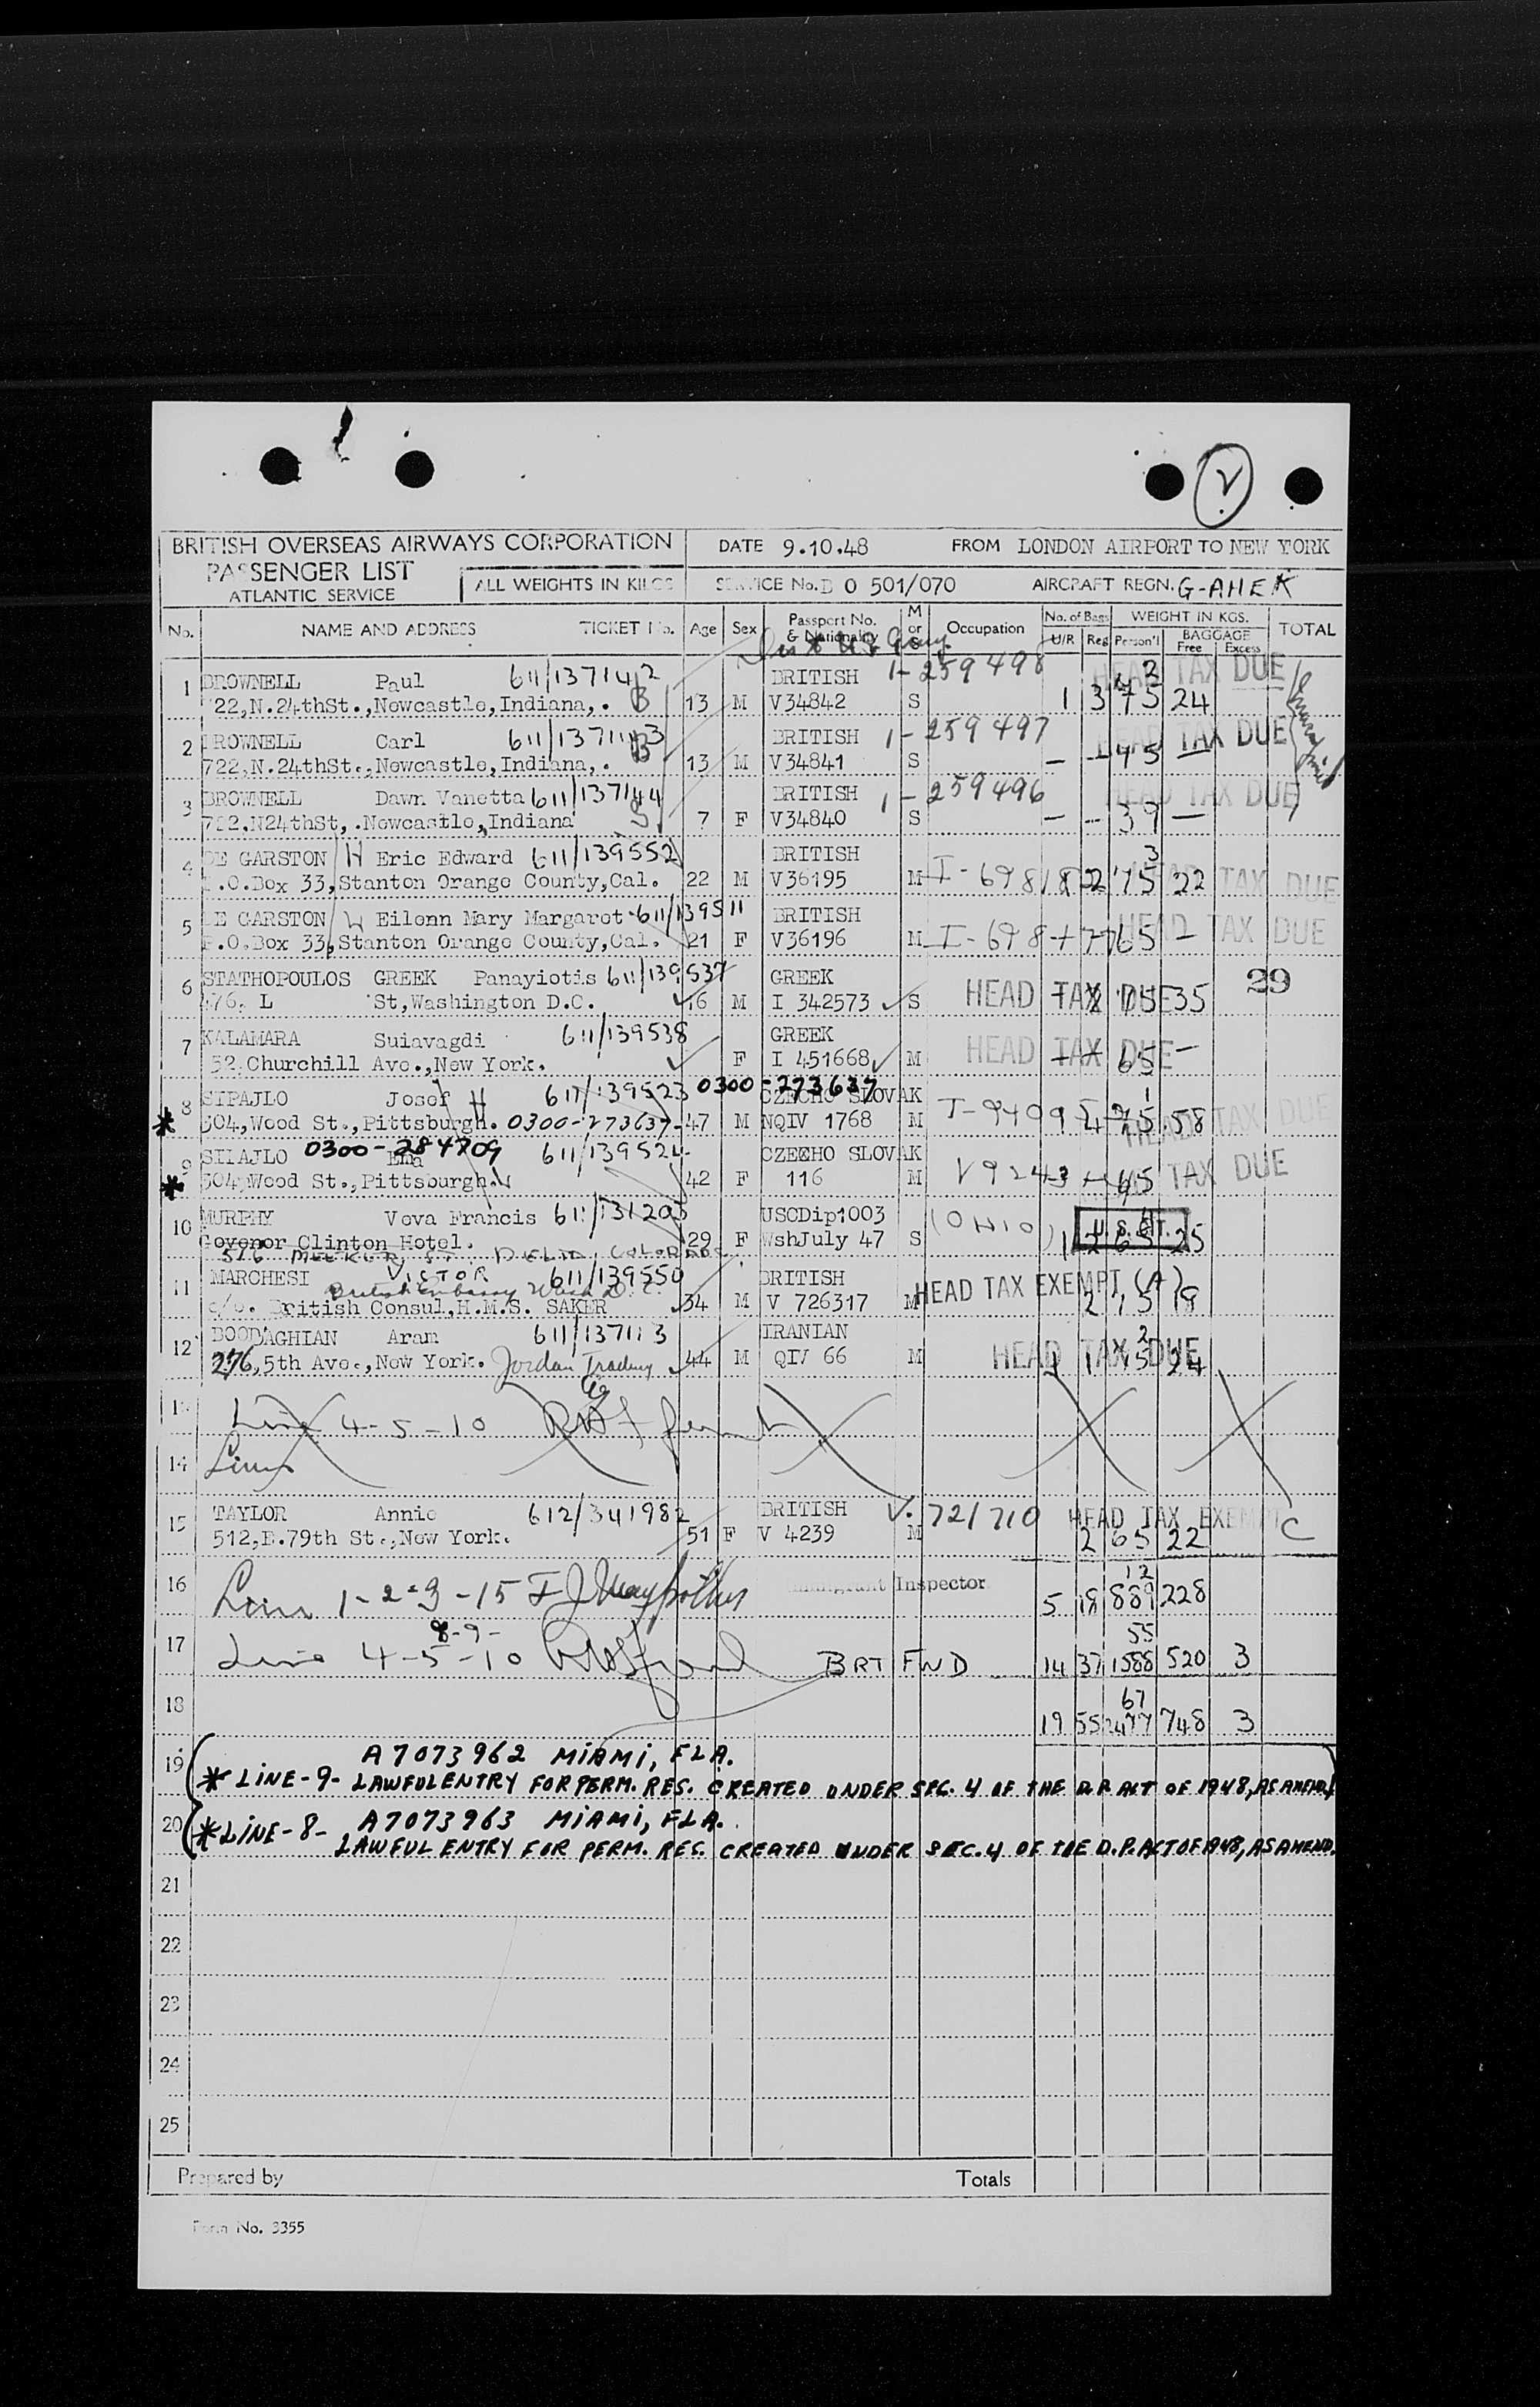 2
BRITISH OVERSEAS AIRWAYS CORPORATION
PASSENGER LIST
ATLANTIC SERVICE
ALL WEIGHTS IN KILOS
DATE 9.10.48 FROM LONDON AIRPORT TO NEW YORK
SERVICE No. D O 501/070 AIRCRAFT REGN. G-AHEK
No. NAME AND ADDRESS TICKET No. Age Sex Passport No. & Nationality M or S Occupation No. of Bags U/R Reg WEIGHT IN KGS. Person'l BAGGAGE Free Excess TOTAL
1 BROWNELL Paul 611/137142 BRITISH 1-259498 HEAD TAX DUE
722,N.24thSt.,Newcastle,Indiana,. B 13 M V34842 S 1 3 75 24
2 BROWNELL Carl 611/137143 BRITISH 1-259497 HEAD TAX DUE
722,N.24thSt.,Newcastle,Indiana,. B 13 M V34841 S - - 45 -
3 BROWNELL Dawn Vanetta 611/137144 BRITISH 1-259496 HEAD TAX DUE
722.N24thSt,.Newcastle,Indiana 7 F V34840 S - - 39 -
4 DE GARSTON H Eric Edward 611/139552 BRITISH HEAD TAX DUE
P.O.Box 33,Stanton Orange County,Cal. 22 M V36195 M I-698 2 75 22
5 DE GARSTON W Eileen Mary Margaret 611/139511 BRITISH HEAD TAX DUE
P.O.Box 33,Stanton Orange County,Cal. 21 F V36196 M I-698 65 -
6 STATHOPOULOS GREEK Panayiotis 611/139537 GREEK HEAD TAX DUE 29
476. L St,Washington D.C. 16 M I 342573 S 75 35
7 KALAMARA Suiavagdi 611/139538 GREEK HEAD TAX DUE
52.Churchill Ave.,New York. F I 451668 M 65 -
8 SIPAJLO Josef H 611/139523 0300-273637 CZECHO SLOVAK HEAD TAX DUE
* 504,Wood St.,Pittsburgh. 0300-273637 47 M NQIV 1768 M 75 58
9 SIPAJLO 0300-284709 Ema 611/139524 CZEEHO SLOVAK HEAD TAX DUE
* 504,Wood St.,Pittsburgh. W 42 F 116 M V9243 65
10 MURPHY Veva Francis 611/131205 USCDip1003 (OHIO) U.S.CIT.
Govenor Clinton Hotel. 29 F WshJuly 47 S 1 2 65 25
516 MEEKER ST. DELTA, COLORADO
11 MARCHESI VICTOR 611/139550 BRITISH HEAD TAX EXEMPT (A)
British Embassy Wash D.C.
c/o. British Consul,H.M.S. SAKER 34 M V 726317 M 2 75 19
12 BOODAGHIAN Aram 611/137113 IRANIAN HEAD TAX DUE
276,5th Ave.,New York. Jordan Trading Co 44 M QIV 66 M 1 1 75 24
13 Line 4-5-10
14 Lines
15 TAYLOR Annie 612/341982 BRITISH V.721710 HEAD TAX EXEMPT C
512,E.79th St.,New York. 51 F V 4239 M 2 65 22
16 Lines 1-2-3-15 Immigrant Inspector 5 18 889 12 228
17 Line 4-5-8-9-10 BRT FWD 14 37 1588 55 520 3
18 19 55 2477 67 748 3
19 A7073962 MIAMI, FLA.
* LINE-9- LAWFUL ENTRY FOR PERM. RES. CREATED UNDER SEC. 4 OF THE D.P. ACT OF 1948, AS AMEND.
20 * LINE-8- A7073963 MIAMI, FLA.
LAWFUL ENTRY FOR PERM. RES. CREATED UNDER SEC. 4 OF THE D.P. ACT OF 1948, AS AMEND.
21
22
23
24
25
Prepared by Totals
Form No. 3355